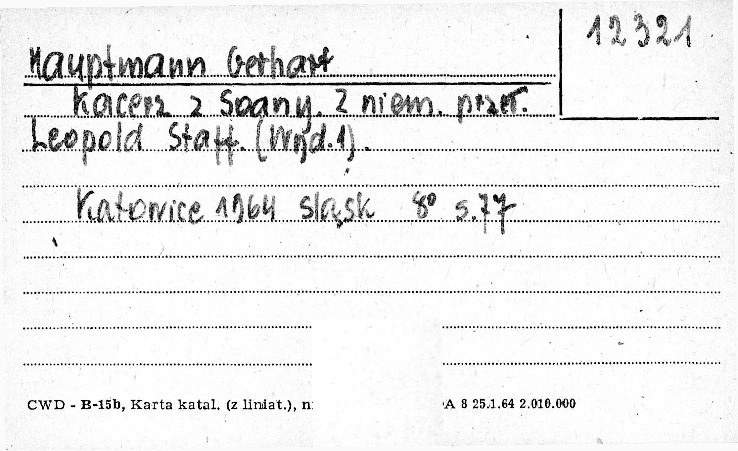 12321
Hauptmann Gerhart
Kacerz z Soany. Z niem. przeł.
Leopold Staff. (Wyd. 1).
Katowice 1964 Śląsk 8° s. 77
CWD - B-15b, Karta katal. (z liniat.), n
A 8 25.1.64 2.010.000